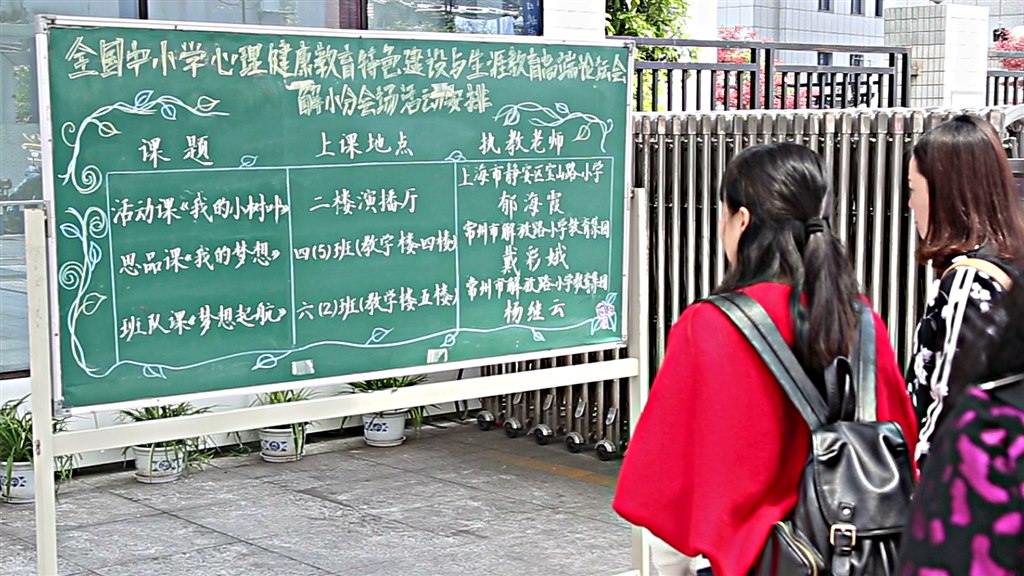 全国中小学心理健康教育特色建设与生涯教育高端论坛会
解小分会场活动安排
课题 上课地点 执教老师
活动课《我的小树叶》 二楼演播厅 上海市静安区宝山路小学
郁海霞
思品课《我的梦想》 四(5)班(教学楼四楼) 常州市解放路小学教育集团
戴彩娥
班队课《梦想起航》 六(2)班(教学楼五楼) 常州市解放路小学教育集团
杨继云